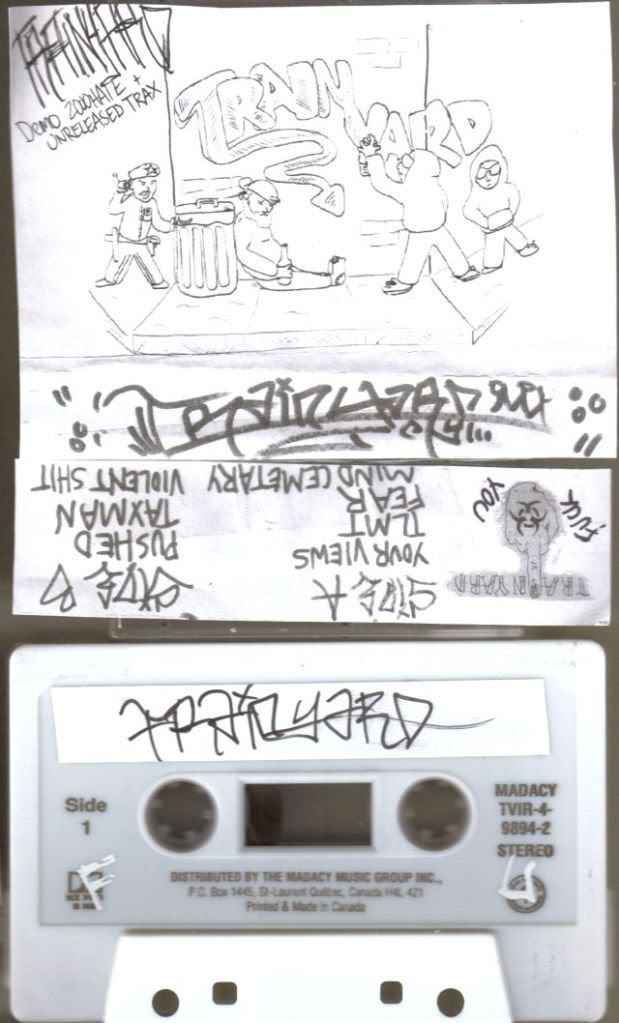 TRAINYARD
Demo 2000HATE +
UNRELEASED TRAX
TRAINYARD
TRAINYARD
FUCK YOU
TRAINYARD
SIDE A
YOUR VIEWS
TLMT
FEAR
MIND CEMETARY
SIDE B
PUSHED
TAXMAN
VIOLENT SHIT
TRAINYARD
Side
1
MADACY
TVIR-4-
9894-2
STEREO
DISTRIBUTED BY THE MADACY MUSIC GROUP INC.,
P.O. Box 1445, St-Laurent Québec, Canada H4L 4Z1
Printed & Made in Canada